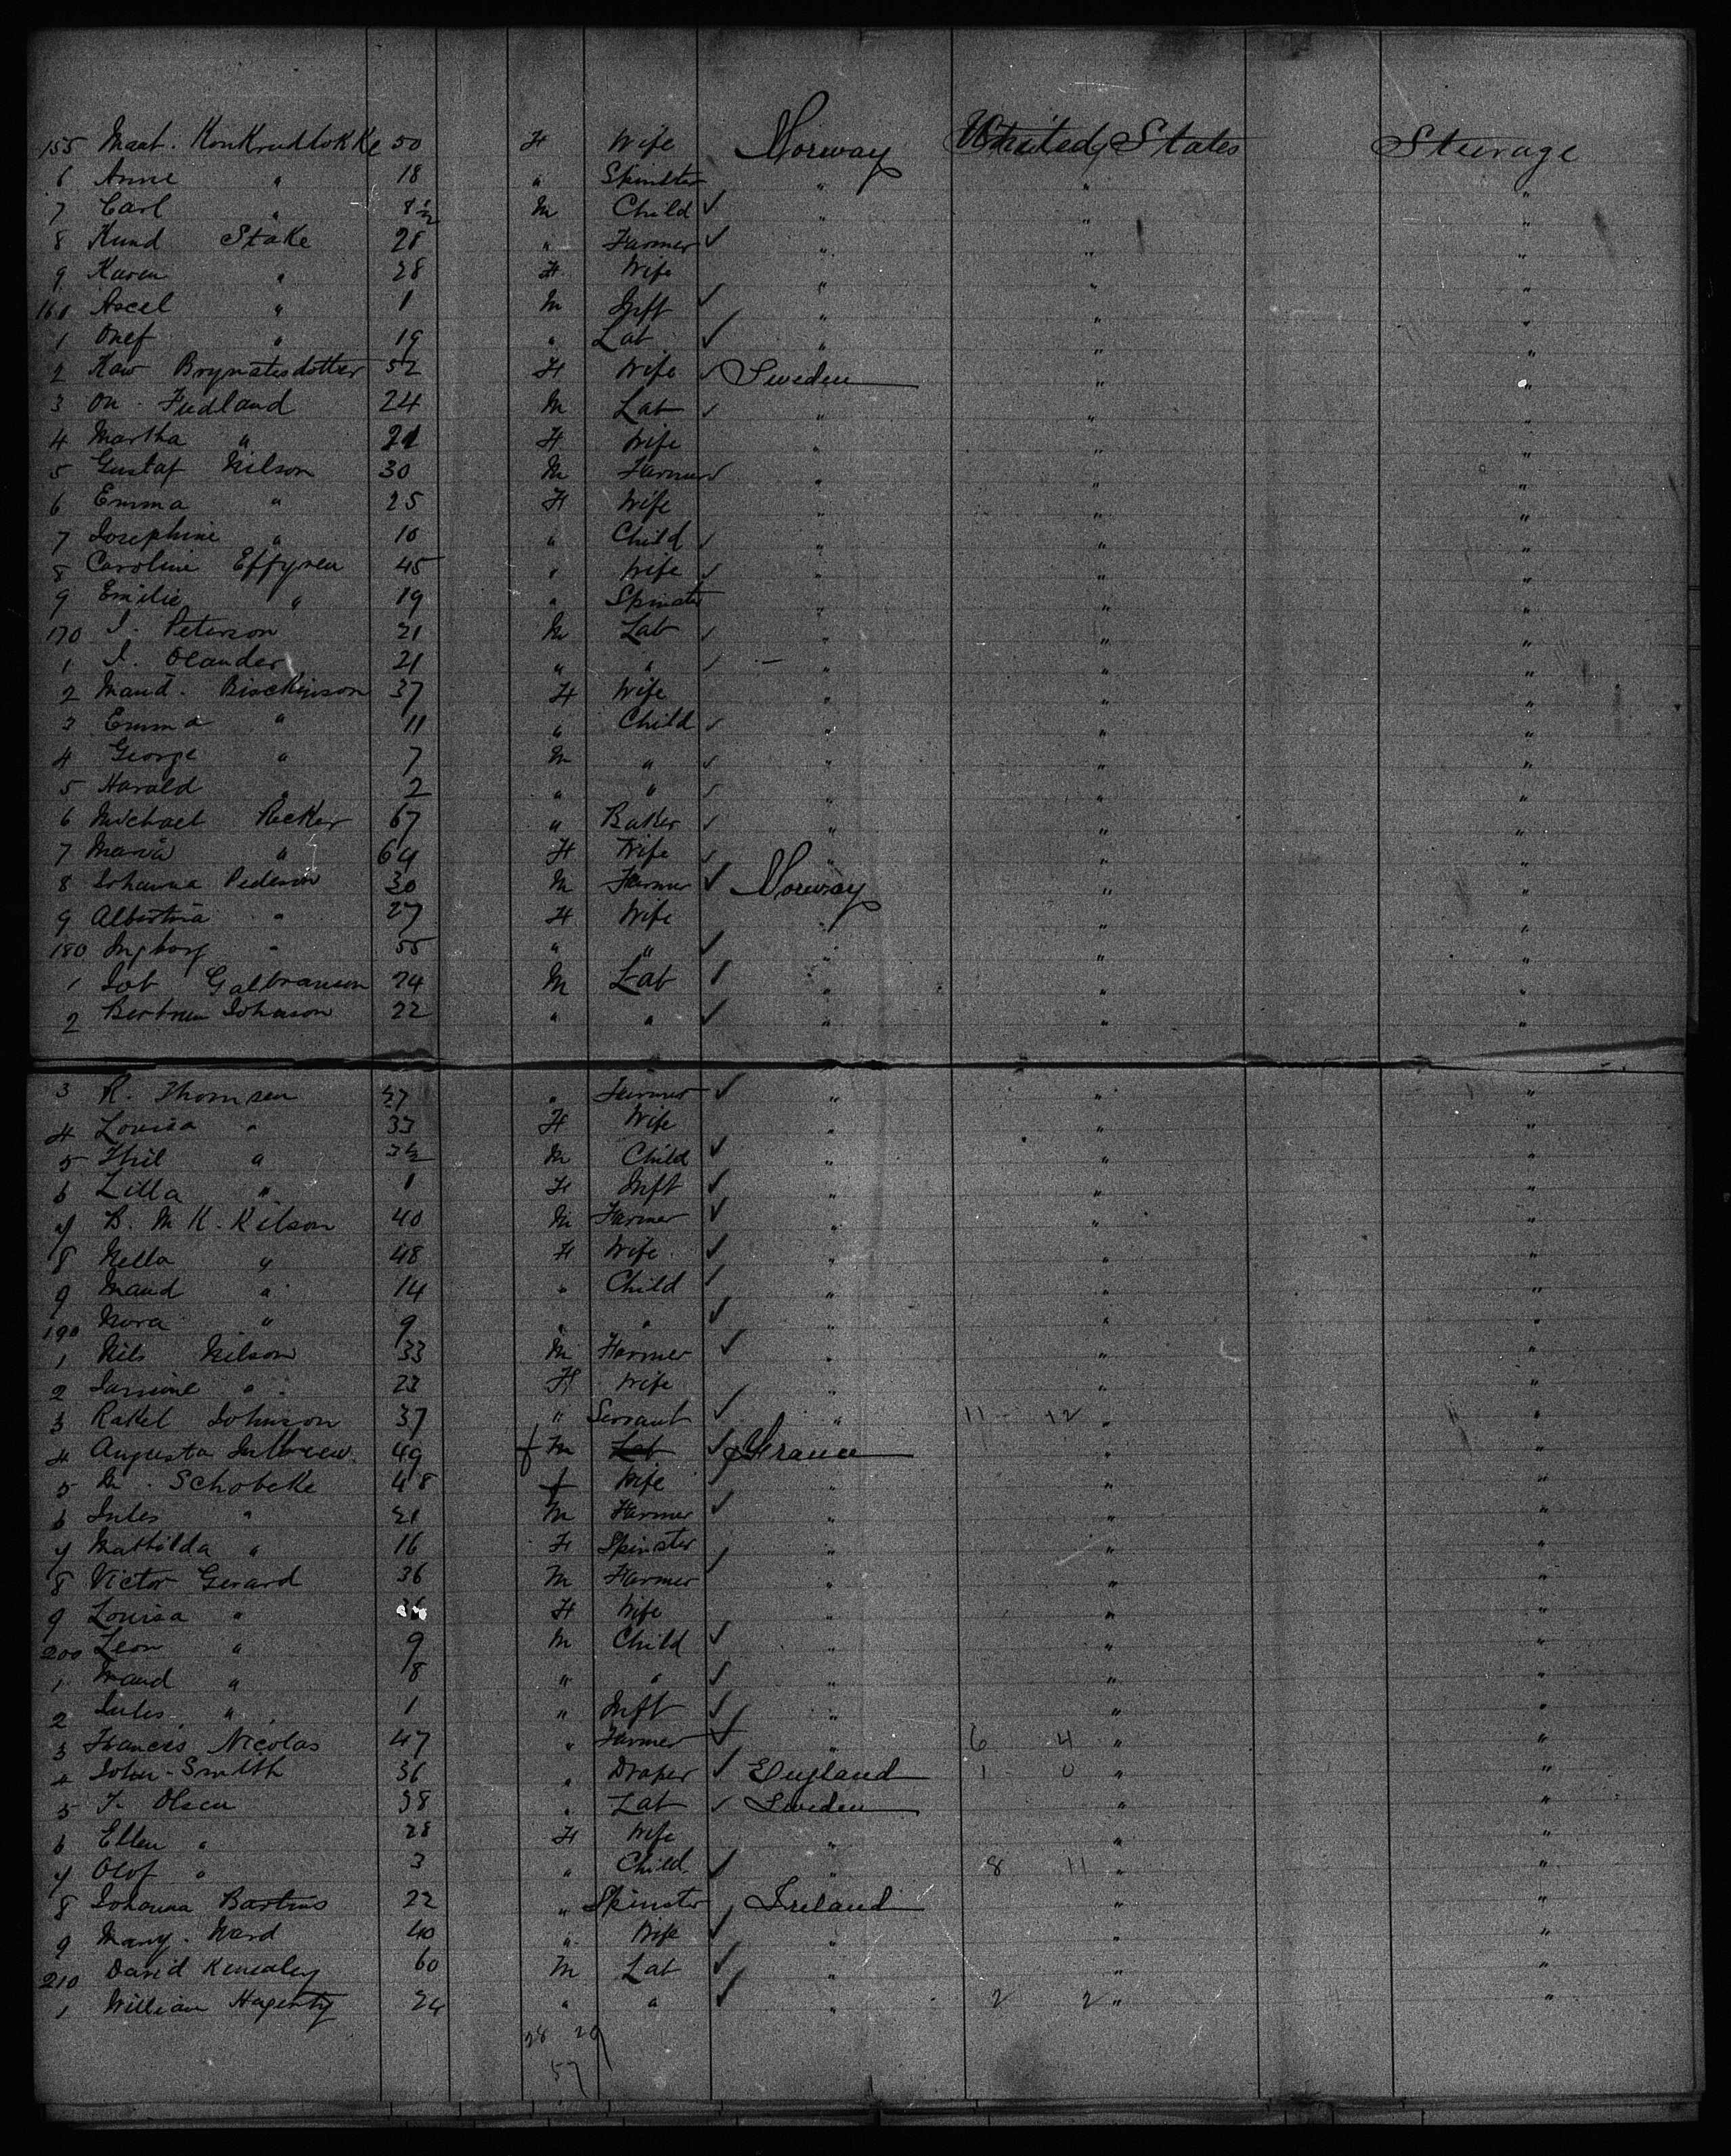 155 Kontradlokke 50 F Wife Norway United States Steerage
6 Anne " 18 " Spinster " " "
7 Carl " 8½ M Child ✓ " " "
8 Knud Stake 28 " Farmer ✓ " " "
9 Karen " 28 F Wife " " "
160 Axcel " 1 M Inft ✓ " " "
1 " 19 " Lab ✓ " " "
2 Kaw Brynatesdotter 52 F Wife ✓ Sweden " "
3 On. Fudland 24 M Lab ✓ " " "
4 Martha " 21 F Wife " " "
5 Gustaf Nilson 30 M Farmer ✓ " " "
6 Emma " 25 F Wife " " "
7 Josephine " 10 " Child ✓ " " "
8 Caroline Effyren 45 " Wife ✓ " " "
9 Emilie " 19 " Spinster " " "
170 J. Peterson 21 M Lab ✓ " " "
1 J. Olander 21 " " ✓ " " "
2 Maud. 37 F Wife " " "
3 Emma " 11 " Child ✓ " " "
4 George " 7 M " ✓ " " "
5 Harald " 2 " " ✓ " " "
6 Michael Packer 67 " Baker ✓ " " "
7 Maria " 64 F Wife ✓ " " "
8 Johanna Pederson 30 M Farmer ✓ Norway " "
9 Albertina " 27 F Wife " " "
180 Ingborg " 55 " " ✓ " " "
1 Galbranson 24 M Lab ✓ " " "
2 Johnson 22 " " ✓ " " "
3 R. Thomsen 37 " Farmer ✓ " " "
4 Louisa " 33 F Wife " " "
5 Thil " 3½ M Child ✓ " " "
6 Lilla " 1 F Inft ✓ " " "
7 B. M. K. Kilson 40 M Farmer ✓ " " "
8 Nella " 48 F Wife ✓ " " "
9 Maud " 14 " Child ✓ " " "
190 Nora " 9 " " ✓ " " "
1 Nils Nilson 33 M Farmer ✓ " " "
2 " 23 F Wife " " "
3 Rakel Johnson 37 " Servant ✓ " 11 12 " "
4 Augusta 49 f M Lab ✓ France " "
5 M. Schobeke 48 f Wife ✓ " " "
6 Jules " 21 M Farmer ✓ " " "
7 Mathilda " 16 F Spinster ✓ " " "
8 Victor Gerard 36 M Farmer " " "
9 Louisa " 36 F Wife " " "
200 Leon " 9 M Child ✓ " " "
1 Maud " 8 " " ✓ " " "
2 Jules " 1 " Inft ✓ " " "
3 Francis Nicolas 47 " Farmer ✓ " 6 4 " "
4 John Smith 36 " Draper ✓ England 1 0 " "
5 T. Olsen 38 " Lab ✓ Sweden " "
6 Ellen " 28 F Wife " " "
7 Olof " 3 " Child ✓ " 8 11 " "
8 Johanna Bastins 22 " Spinster ✓ Ireland " "
9 Mary. Ward 40 " Wife ✓ " " "
210 David Kenealey 60 M Lab ✓ " " "
1 William Hagerty 24 " " ✓ " 2 2 " "
28 29
57